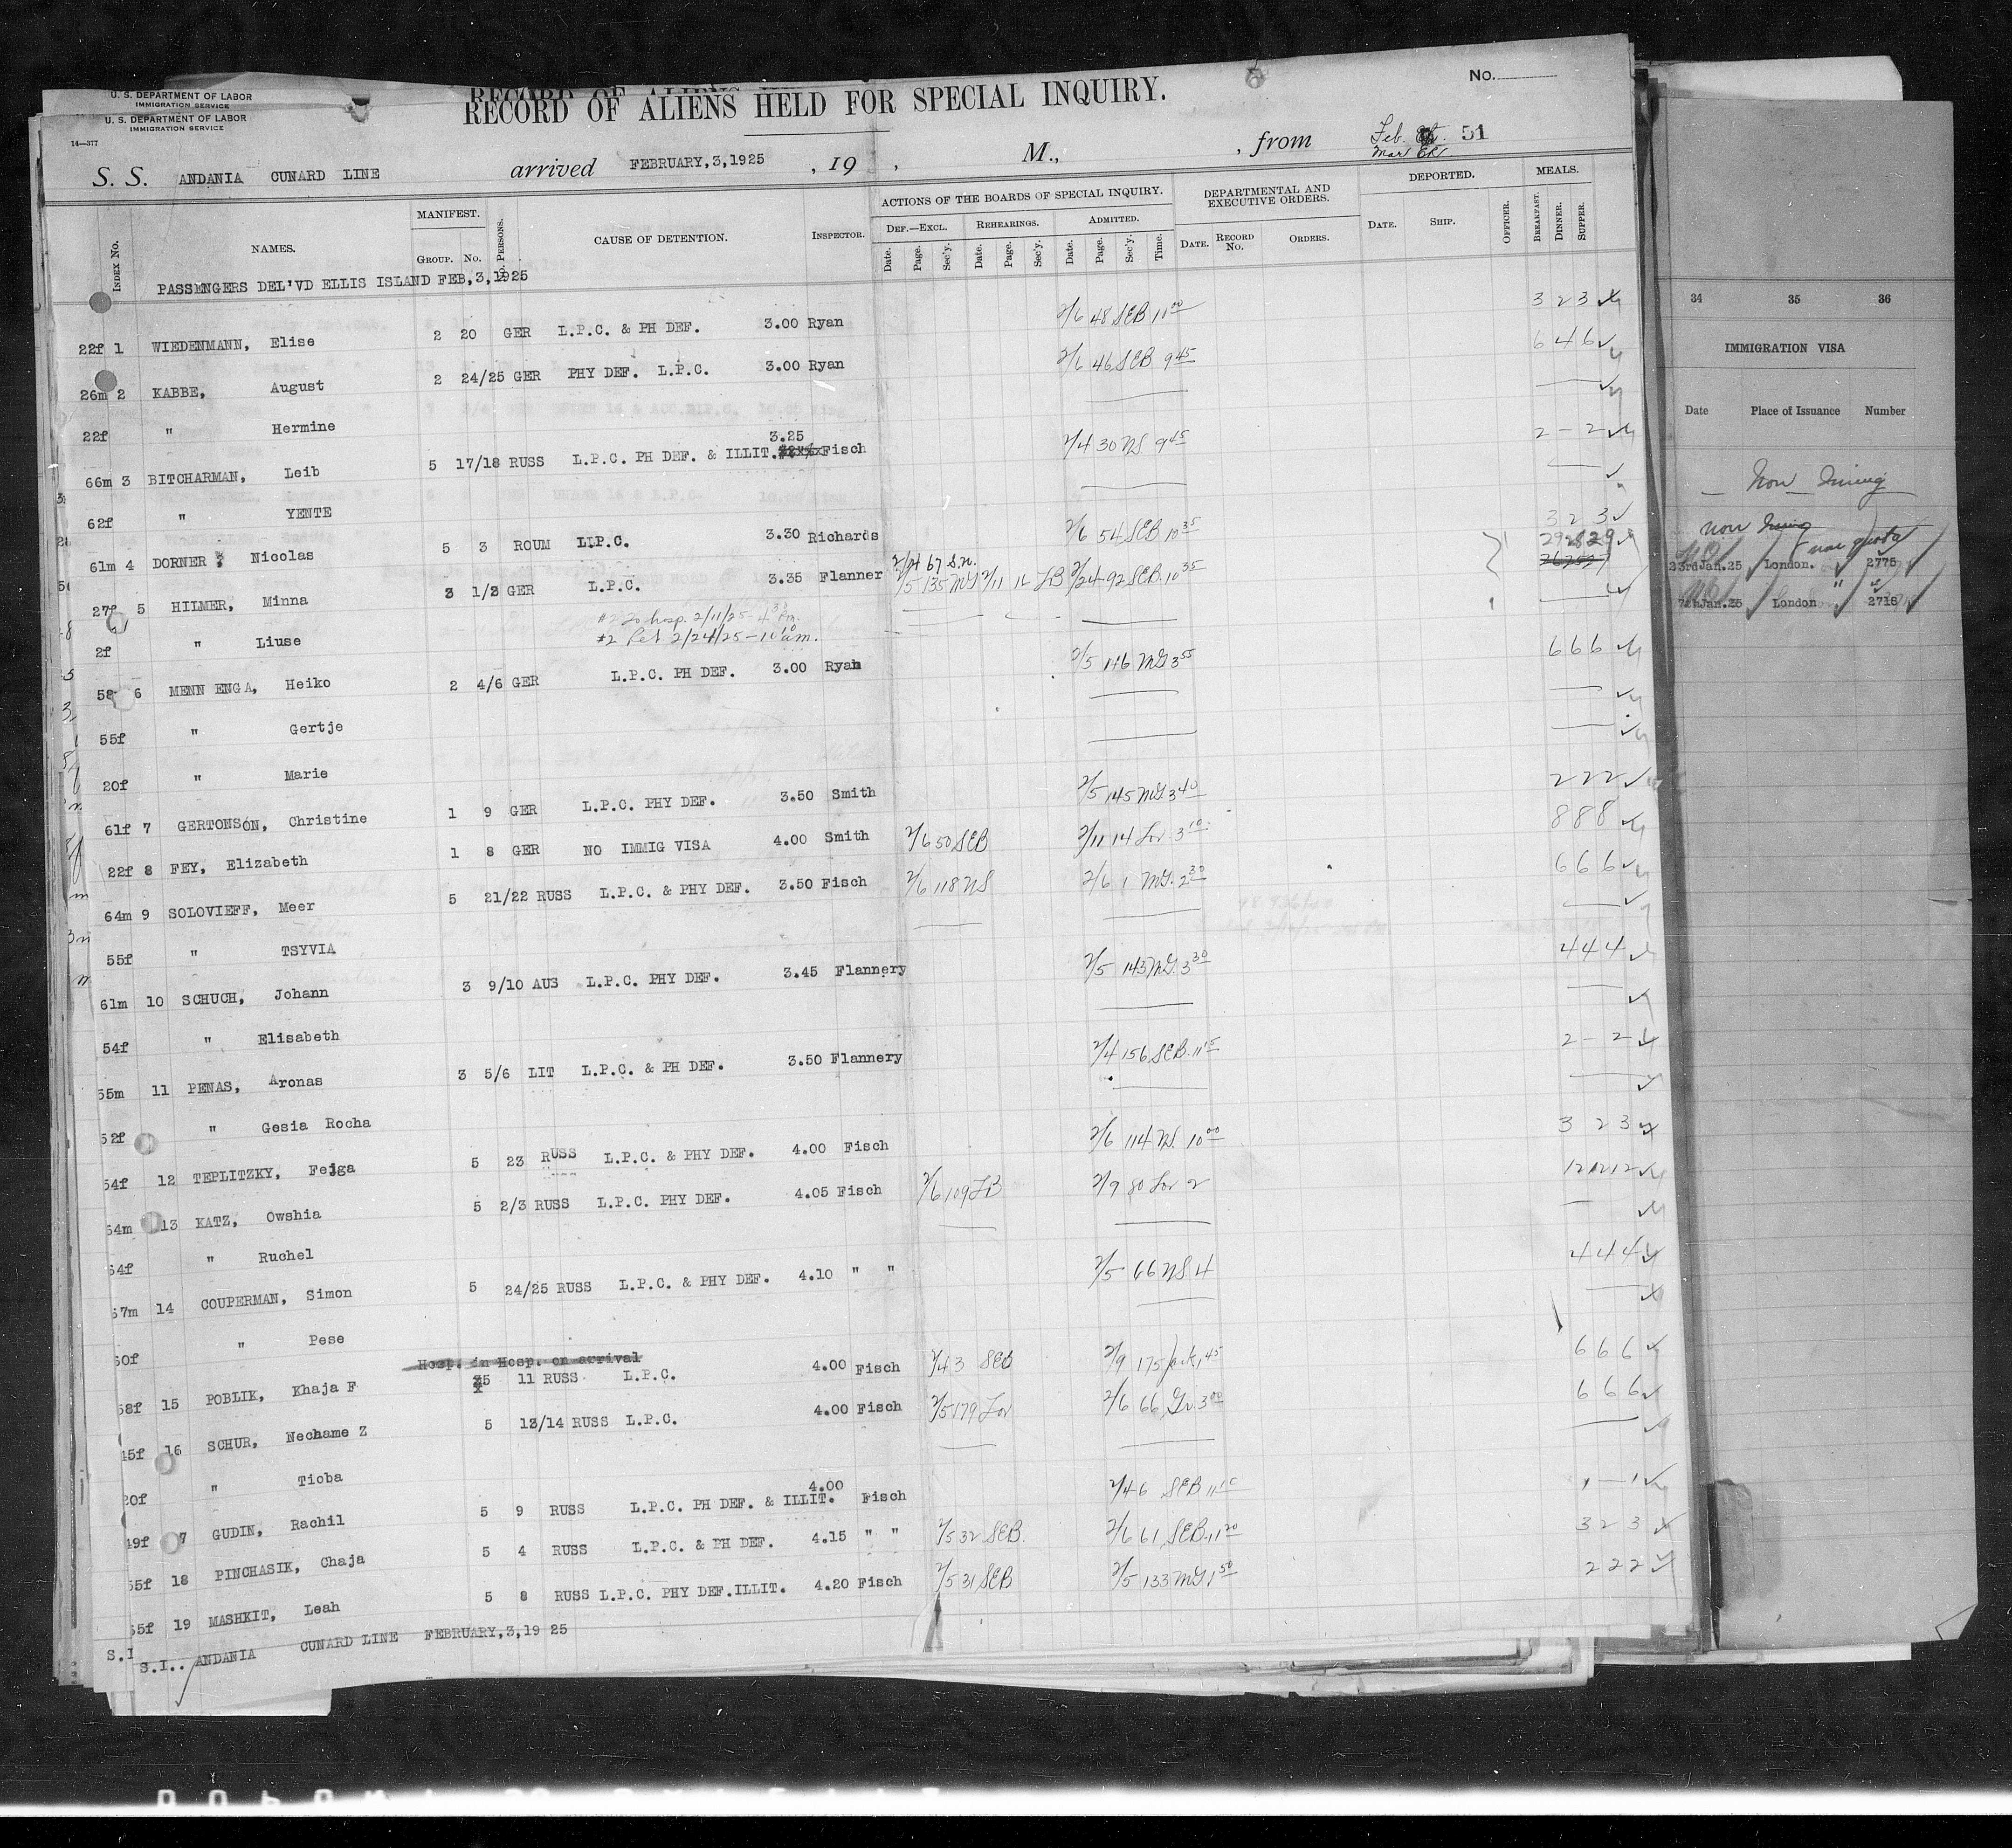 U. S. DEPARTMENT OF LABOR
IMMIGRATION SERVICE
U. S. DEPARTMENT OF LABOR
IMMIGRATION SERVICE
14—377
RECORD OF ALIENS HELD FOR SPECIAL INQUIRY.
No.
S. S. ANDANIA CUNARD LINE arrived FEBRUARY,3,1925 , 19 , M., , from Feb. 51
INDEX No. NAMES. MANIFEST. GROUP. No. PERSONS. CAUSE OF DETENTION. INSPECTOR. ACTIONS OF THE BOARDS OF SPECIAL INQUIRY. DEPARTMENTAL AND EXECUTIVE ORDERS. DEPORTED. MEALS.
DEF.—EXCL. REHEARINGS. ADMITTED.
Date. Page. Sec'y. Date. Page. Sec'y. Date. Page. Sec'y. Time. DATE. RECORD No. ORDERS. DATE. SHIP. OFFICER. BREAKFAST. DINNER. SUPPER.
PASSENGERS DEL'VD ELLIS ISLAND FEB,3,1925
22f 1 WIEDENMANN, Elise 2 20 GER L.P.C. & PH DEF. 3.00 Ryan 2/6 48 SEB 11 00 3 2 3
26m 2 KABBE, August 2 24/25 GER PHY DEF. L.P.C. 3.00 Ryan 2/6 46 SEB 9 45 6 4 6
22f " Hermine
66m 3 BITCHARMAN, Leib 5 17/18 RUSS L.P.C. PH DEF. & ILLIT. 3.25 Fisch 2/4 30 NS 9 45 2 - 2
62f " YENTE
61m 4 DORNER, Nicolas 5 3 ROUM L.P.C. 3.30 Richards 2/6 54 SEB 10 35 3 2 3
27f 5 HILMER, Minna 3 1/2 GER L.P.C. 3.35 Flanner 2/24 67 S.N. 2/5 135 MG 2/11 12 LB 2/24 92 SEB 10 35 29 28 29
#2 to hosp. 2/11/25 - 4 30 Pm.
2f " Liuse #2 Ret 2/24/25 - 10 10 am.
58 6 MENN ENGA, Heiko 2 4/6 GER L.P.C. PH DEF. 3.00 Ryan 2/5 146 MG 3 55 6 6 6
55f " Gertje
20f " Marie
61f 7 GERTONSON, Christine 1 9 GER L.P.C. PHY DEF. 3.50 Smith 2/5 145 MG 3 40 2 2 2
22f 8 FEY, Elizabeth 1 8 GER NO IMMIG VISA 4.00 Smith 2/6 50 SEB 2/11 14 Lov 3 10 8 8 8
64m 9 SOLOVIEFF, Meer 5 21/22 RUSS L.P.C. & PHY DEF. 3.50 Fisch 2/6 118 NS 2/6 1 MG. 2 30 6 6 6
55f " TSYVIA
61m 10 SCHUCH, Johann 3 9/10 AUS L.P.C. PHY DEF. 3.45 Flannery 2/5 143 MG. 3 30 4 4 4
54f " Elisabeth
55m 11 PENAS, Aronas 3 5/6 LIT L.P.C. & PH DEF. 3.50 Flannery 2/4 156 SEB. 11 15 2 - 2
52f " Gesia Rocha
54f 12 TEPLITZKY, Fejga 5 23 RUSS L.P.C. & PHY DEF. 4.00 Fisch 2/6 114 NS. 10 00 3 2 3
64m 13 KATZ, Owshia 5 2/3 RUSS L.P.C. PHY DEF. 4.05 Fisch 2/6 109 LB 2/9 80 Lov 2 12 12 12
64f " Ruchel
67m 14 COUPERMAN, Simon 5 24/25 RUSS L.P.C. & PHY DEF. 4.10 " " 2/5 66 NS 4 4 4 4
60f " Pese
Hosp. in Hosp. on arrival
58f 15 POBLIK, Khaja F 5 11 RUSS L.P.C. 4.00 Fisch 2/4 3 SEB 2/9 175 1 45 6 6 6
45f 16 SCHUR, Nechame Z 5 13/14 RUSS L.P.C. 4.00 Fisch 2/5 179 Lov 2/6 66 Gr. 3 00 6 6 6
20f " Tioba
49f 7 GUDIN, Rachil 5 9 RUSS L.P.C. PH DEF. & ILLIT. 4.00 Fisch 2/4 6 SEB 11 10 1 - 1
55f 18 PINCHASIK, Chaja 5 4 RUSS L.P.C. & PH DEF. 4.15 " " 2/5 32 SEB. 2/6 61 SEB. 11 20 3 2 3
55f 19 MASHKIT, Leah 5 8 RUSS L.P.C. PHY DEF.ILLIT. 4.20 Fisch 2/5 31 SEB 2/5 133 MG 1 50 2 2 2
S.I
S.I.. ANDANIA CUNARD LINE FEBRUARY,3,19 25
34 35 36
IMMIGRATION VISA
Date Place of Issuance Number
non quota
23rd Jan.25 London. 2775
7th Jan.25 London 2716